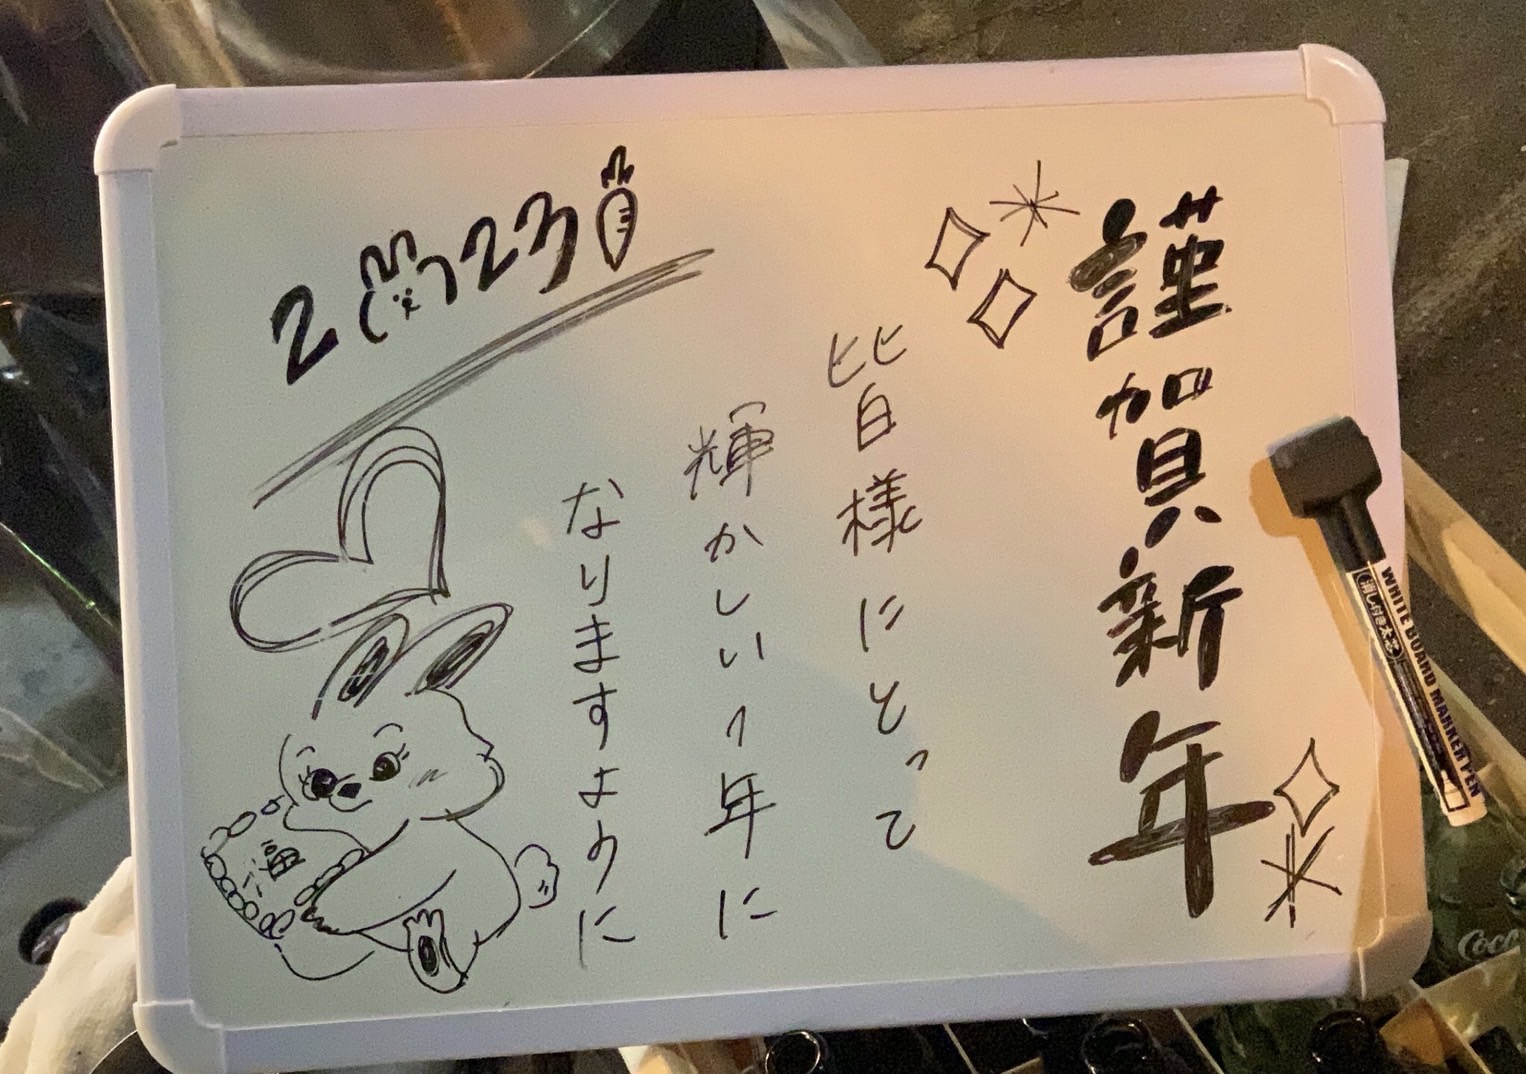 謹賀新年
皆様にとって
輝かしい1年に
なりますように
2023
WHITE BOARD MARKER PEN
Coca